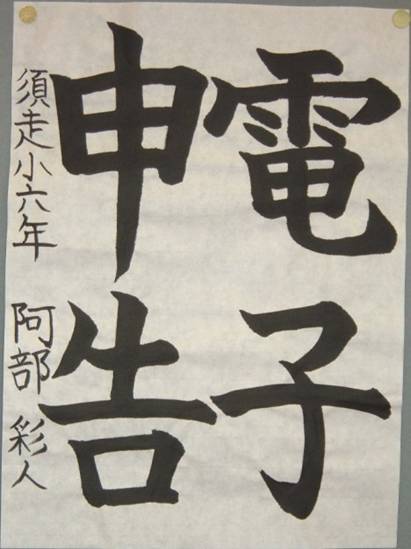 電子
申告
須走小六年 阿部 彩人